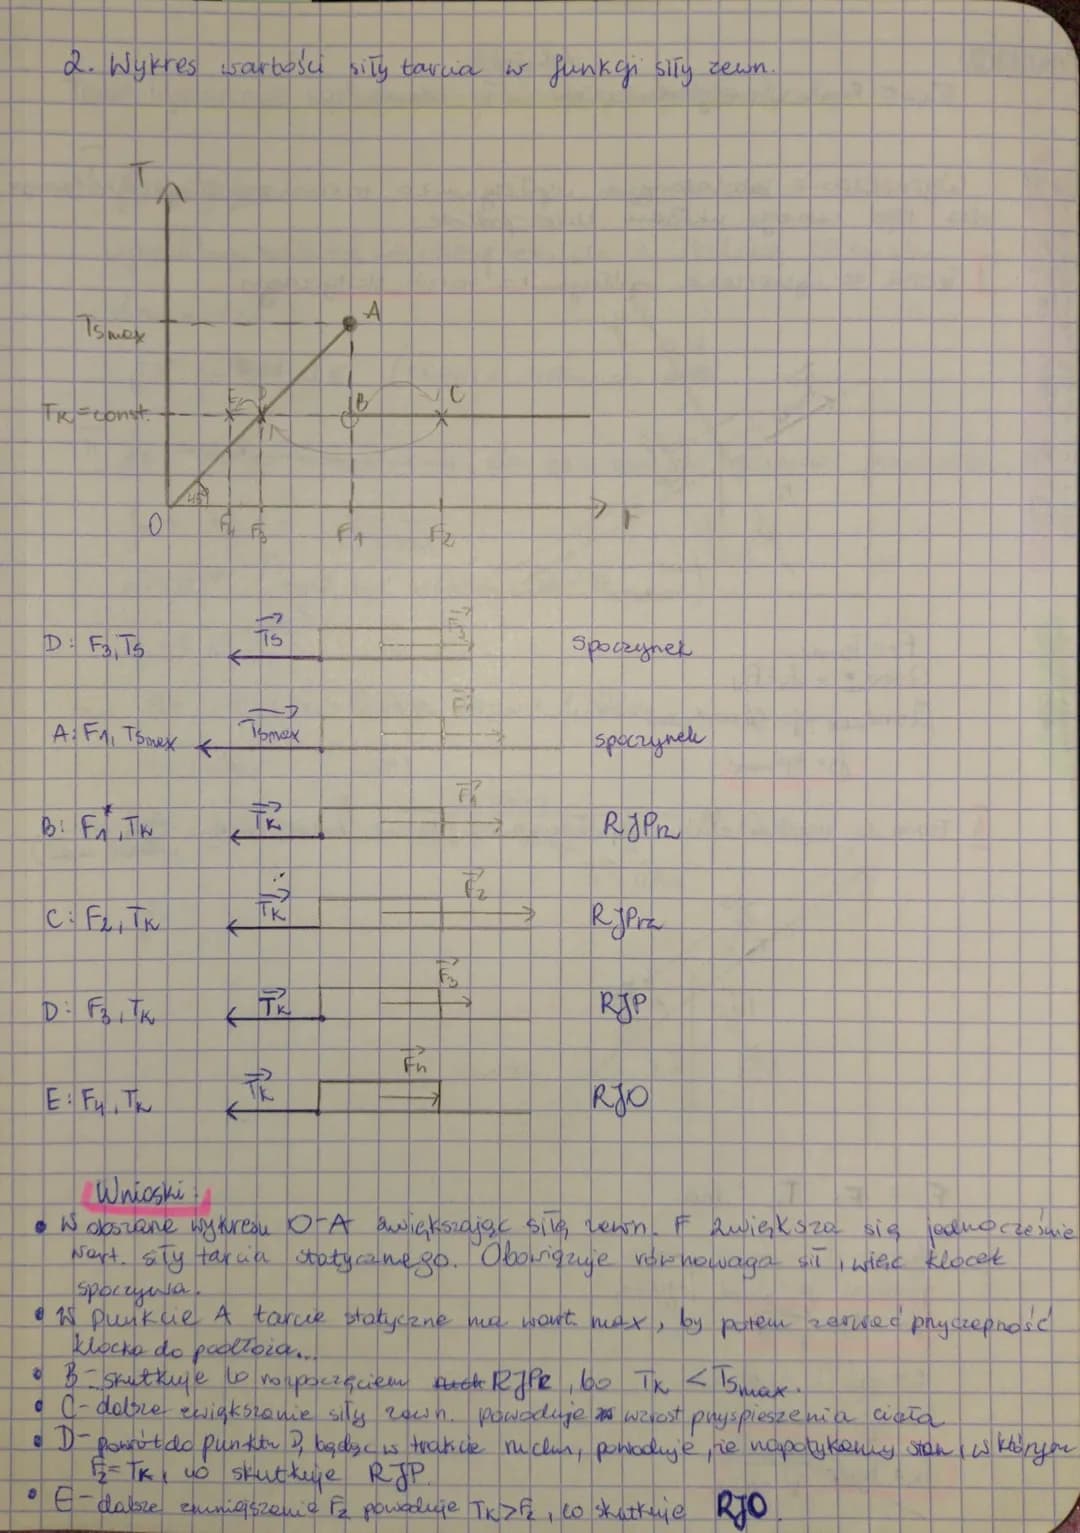 2. Wykres wartości siły tarcia w funkcji siły zewn.
T
A
Tsmax
E D B C
TK = const.
45°
0 F4 F3 F1 F2 F
D: F3, Ts Ts F3 spoczynek
A: F1, Tsmax Tsmax F1 spoczynek
B: F1*, TK TK F1 RJPrz
C: F2, TK TK F2 RJPrz
D: F3, TK TK F3 RJP
E: F4, TK TK F4 RJO
Wnioski:
• W obszarze wykresu O-A zwiększając siłę zewn. F zwiększa się jednocześnie
wart. siły tarcia statycznego. Obowiązuje równowaga sił, więc klocek
spoczywa.
• W punkcie A tarcie statyczne ma wart. max, by potem zerwać przyczepność
klocka do podłoża...
• B - skutkuje to rozpoczęciem RJPrz, bo TK < Tsmax.
• C - dalsze zwiększanie siły zewn. powoduje wzrost przyspieszenia ciała
• D - powrót do punktu D, będąc w trakcie ruchu, powoduje, że napotykamy stan, w którym
F2 = TK, co skutkuje RJP.
• E - dalsze zmniejszanie F2 powoduje TK > F2, co skutkuje RJO.